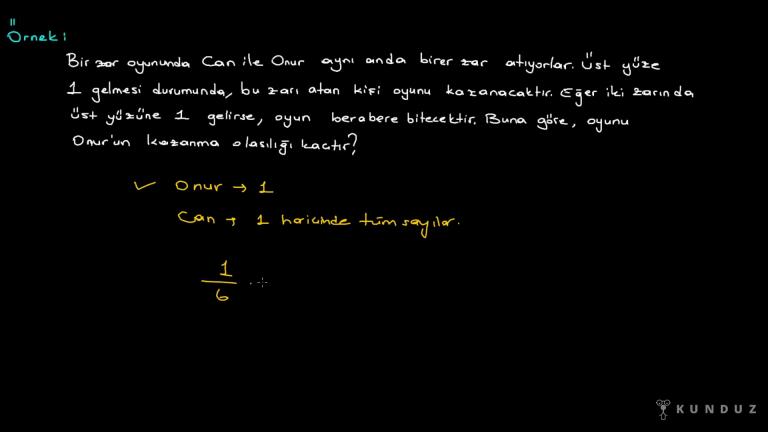 Örnek:
Bir zar oyununda Can ile Onur aynı anda birer zar atıyorlar. Üst yüze
1 gelmesi durumunda, bu zarı atan kişi oyunu kazanacaktır. Eğer iki zarında
üst yüzüne 1 gelirse, oyun berabere bitecektir. Buna göre, oyunu
Onur'un kazanma olasılığı kaçtır?
✓ Onur → 1
Can → 1 haricinde tüm sayılar.
1
6 ·
KUNDUZ